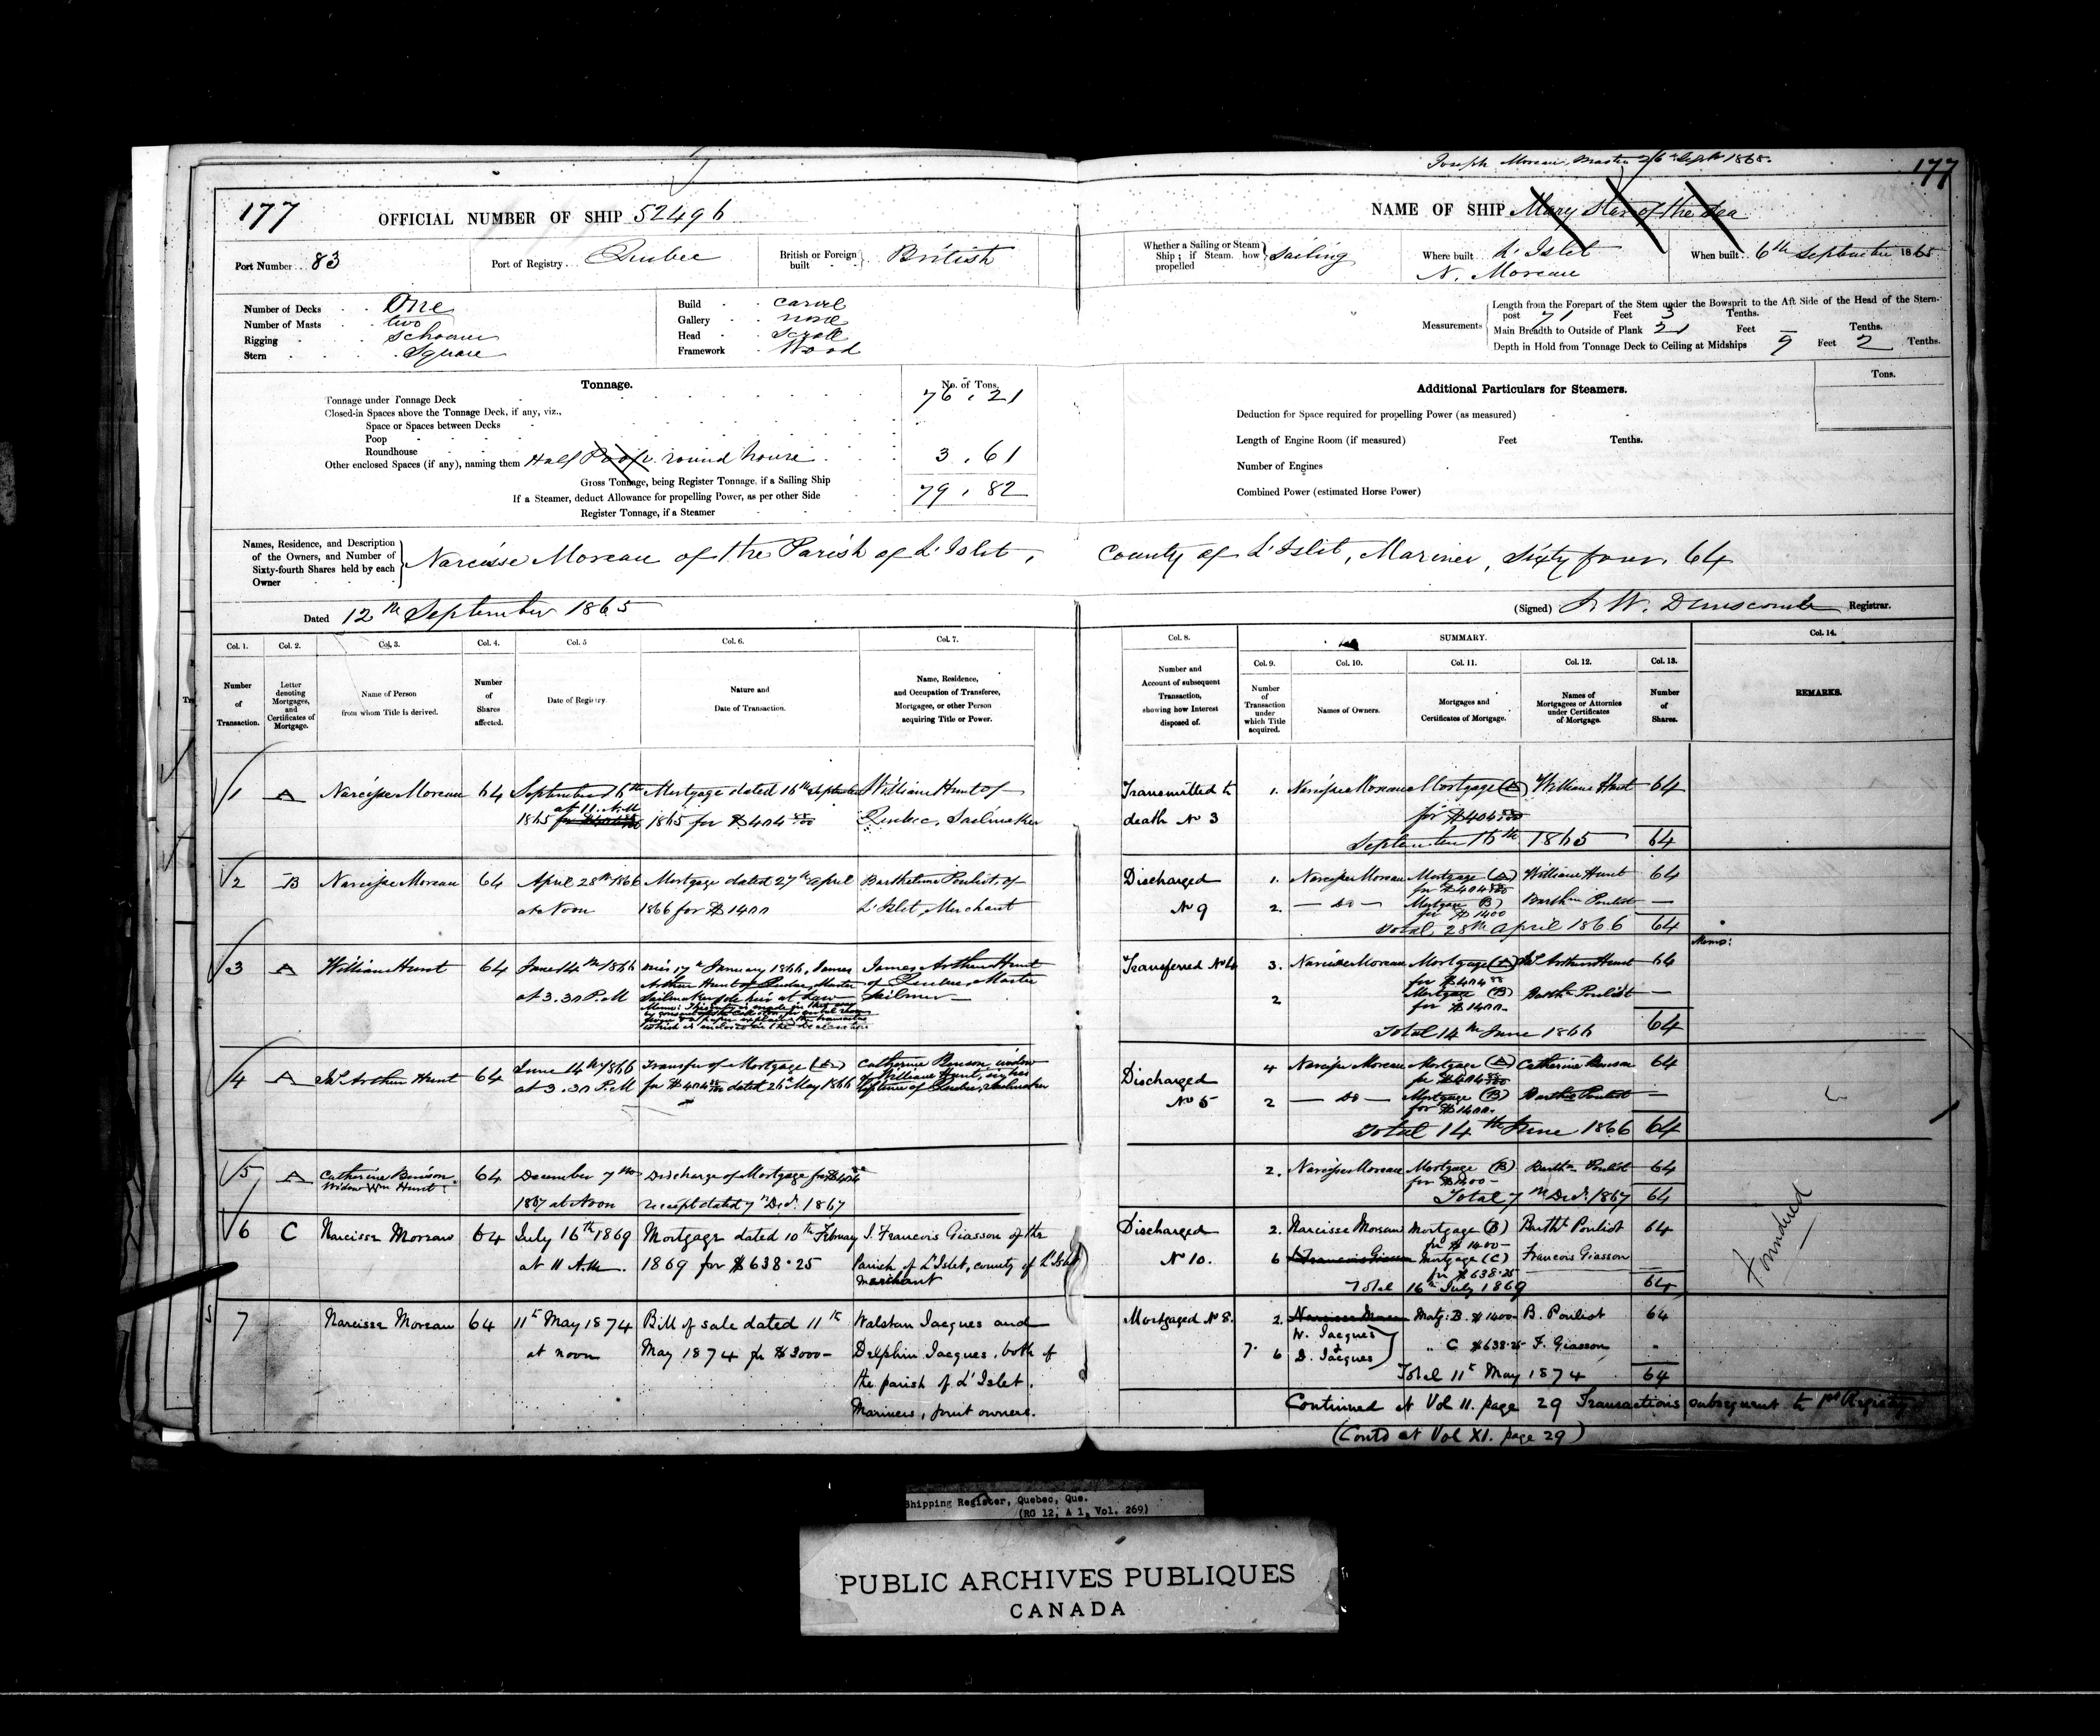 Joseph Moreau, Master 26th Sept 1865.
177
177
OFFICIAL NUMBER OF SHIP 52496
NAME OF SHIP Mary Star of the Sea
Port Number 83
Port of Registry Quebec
British or Foreign built British
Whether a Sailing or Steam Ship; if Steam, how propelled Sailing
Where built L'Islet
N. Moreau
When built 6th September 1865
Number of Decks One
Number of Masts two
Rigging Schooner
Stern Square
Build Carvel
Gallery none
Head Scroll
Framework Wood
Measurements
Length from the Forepart of the Stem under the Bowsprit to the Aft Side of the Head of the Stern-
post 71 Feet 3 Tenths.
Main Breadth to Outside of Plank 21 Feet — Tenths.
Depth in Hold from Tonnage Deck to Ceiling at Midships 9 Feet 2 Tenths.
Tonnage.
No. of Tons.
Tonnage under Tonnage Deck 76.21
Closed-in Spaces above the Tonnage Deck, if any, viz.,
Space or Spaces between Decks
Poop
Roundhouse
Other enclosed Spaces (if any), naming them Half Poop round house 3.61
Gross Tonnage, being Register Tonnage, if a Sailing Ship 79.82
If a Steamer, deduct Allowance for propelling Power, as per other Side
Register Tonnage, if a Steamer
Additional Particulars for Steamers.
Tons.
Deduction for Space required for propelling Power (as measured)
Length of Engine Room (if measured) Feet Tenths.
Number of Engines
Combined Power (estimated Horse Power)
Names, Residence, and Description
of the Owners, and Number of
Sixty-fourth Shares held by each
Owner
Narcisse Moreau of the Parish of L'Islet, County of L'Islet, Mariner, Sixty four, 64
Dated 12th September 1865
(Signed) J. W. Dunscomb Registrar.
Col. 1.
Number of Transaction.
Col. 2.
Letter denoting Mortgages, and Certificates of Mortgage.
Col. 3.
Name of Person from whom Title is derived.
Col. 4.
Number of Shares affected.
Col. 5
Date of Registry.
Col. 6.
Nature and Date of Transaction.
Col. 7.
Name, Residence, and Occupation of Transferee, Mortgagee, or other Person acquiring Title or Power.
Col. 8.
Number and Account of subsequent Transaction, showing how Interest disposed of.
SUMMARY.
Col. 9.
Number of Transaction under which Title acquired.
Col. 10.
Names of Owners.
Col. 11.
Mortgages and Certificates of Mortgage.
Col. 12.
Names of Mortgagees or Attornies under Certificates of Mortgage.
Col. 13.
Number of Shares.
Col. 14.
REMARKS.
1 A Narcisse Moreau 64 September 16th Mortgage dated 16th September William Hunt of
at 11. A.M
1865 1865 for $404 Quebec, Sailmaker
Transmitted by 1. Narcisse Moreau Mortgage (A) William Hunt 64
death No 3 for $404
September 16th 1865 64
2 B Narcisse Moreau 64 April 28th 1866 Mortgage dated 27th April Barthelimi Pouliot, of
at Noon 1866 for $1400 L'Islet, Merchant
Discharged 1. Narcisse Moreau Mortgage (A) William Hunt 64
for $404
No 9 2. — Do — Mortgage (B) Barth Pouliot —
for $1400
Total 28th April 1866 64
3 A William Hunt 64 June 14th 1866 17th January 1866, James James Arthur Hunt
Arthur Hunt of Quebec, Master of Quebec, Master
at 3.30 P.M Sailmaker sole heir at Law
Transferred No 4 3. Narcisse Moreau Mortgage (A) Jas Arthur Hunt 64
for $404
2 Mortgage (B) Barth Pouliot —
for $1400
Total 14th June 1866 64
Memo:
4 A Jas Arthur Hunt 64 June 14th 1866 Transfer of Mortgage (A) Catherine Benson, widow
at 3.30 P.M for $404 dated 26th May 1866 of William Hunt, in his
lifetime of Quebec, Sailmaker
Discharged 4 Narcisse Moreau Mortgage (A) Catherine Benson 64
for $404
No 5 2 — Do — Mortgage (B) Barth Pouliot —
for $1400
Total 14th June 1866 64
5 A Catherine Benson 64 December 7th Discharge of Mortgage for $404
Widow Wm Hunt
1867 at Noon receipt dated 7th Decr. 1867
2. Narcisse Moreau Mortgage (B) Barth Pouliot 64
for $1400 —
Total 7th Decr. 1867 64
6 C Narcisse Moreau 64 July 16th 1869 Mortgage dated 10th February J. Francois Giasson of the
at 11 A.M. 1869 for $638.25 Parish of L'Islet, county of L'Islet
merchant
Discharged 2. Narcisse Moreau Mortgage (B) Barth Pouliot 64
for $1400 —
No 10. 6 Francois Giasson Mortgage (C) Francois Giasson
for $638.25
Total 16th July 1869 64
Foundered
7 Narcisse Moreau 64 11th May 1874 Bill of sale dated 11th Walstan Jacques and
at noon May 1874 for $3000 — Delphin Jacques, both of
the parish of L'Islet.
Mariners, joint owners.
Mortgaged No 8. 2. Narcisse Moreau Matg: B. $1400 B. Pouliot 64
W. Jacques
7. 6 D. Jacques " C $638.25 F. Giasson "
Total 11th May 1874 64
Continued at Vol 11. page 29 Transactions subsequent to
(Contd at Vol XI. page 29)
Shipping Register, Quebec, Que.
(RG 12, A 1, Vol. 269)
PUBLIC ARCHIVES PUBLIQUES
CANADA